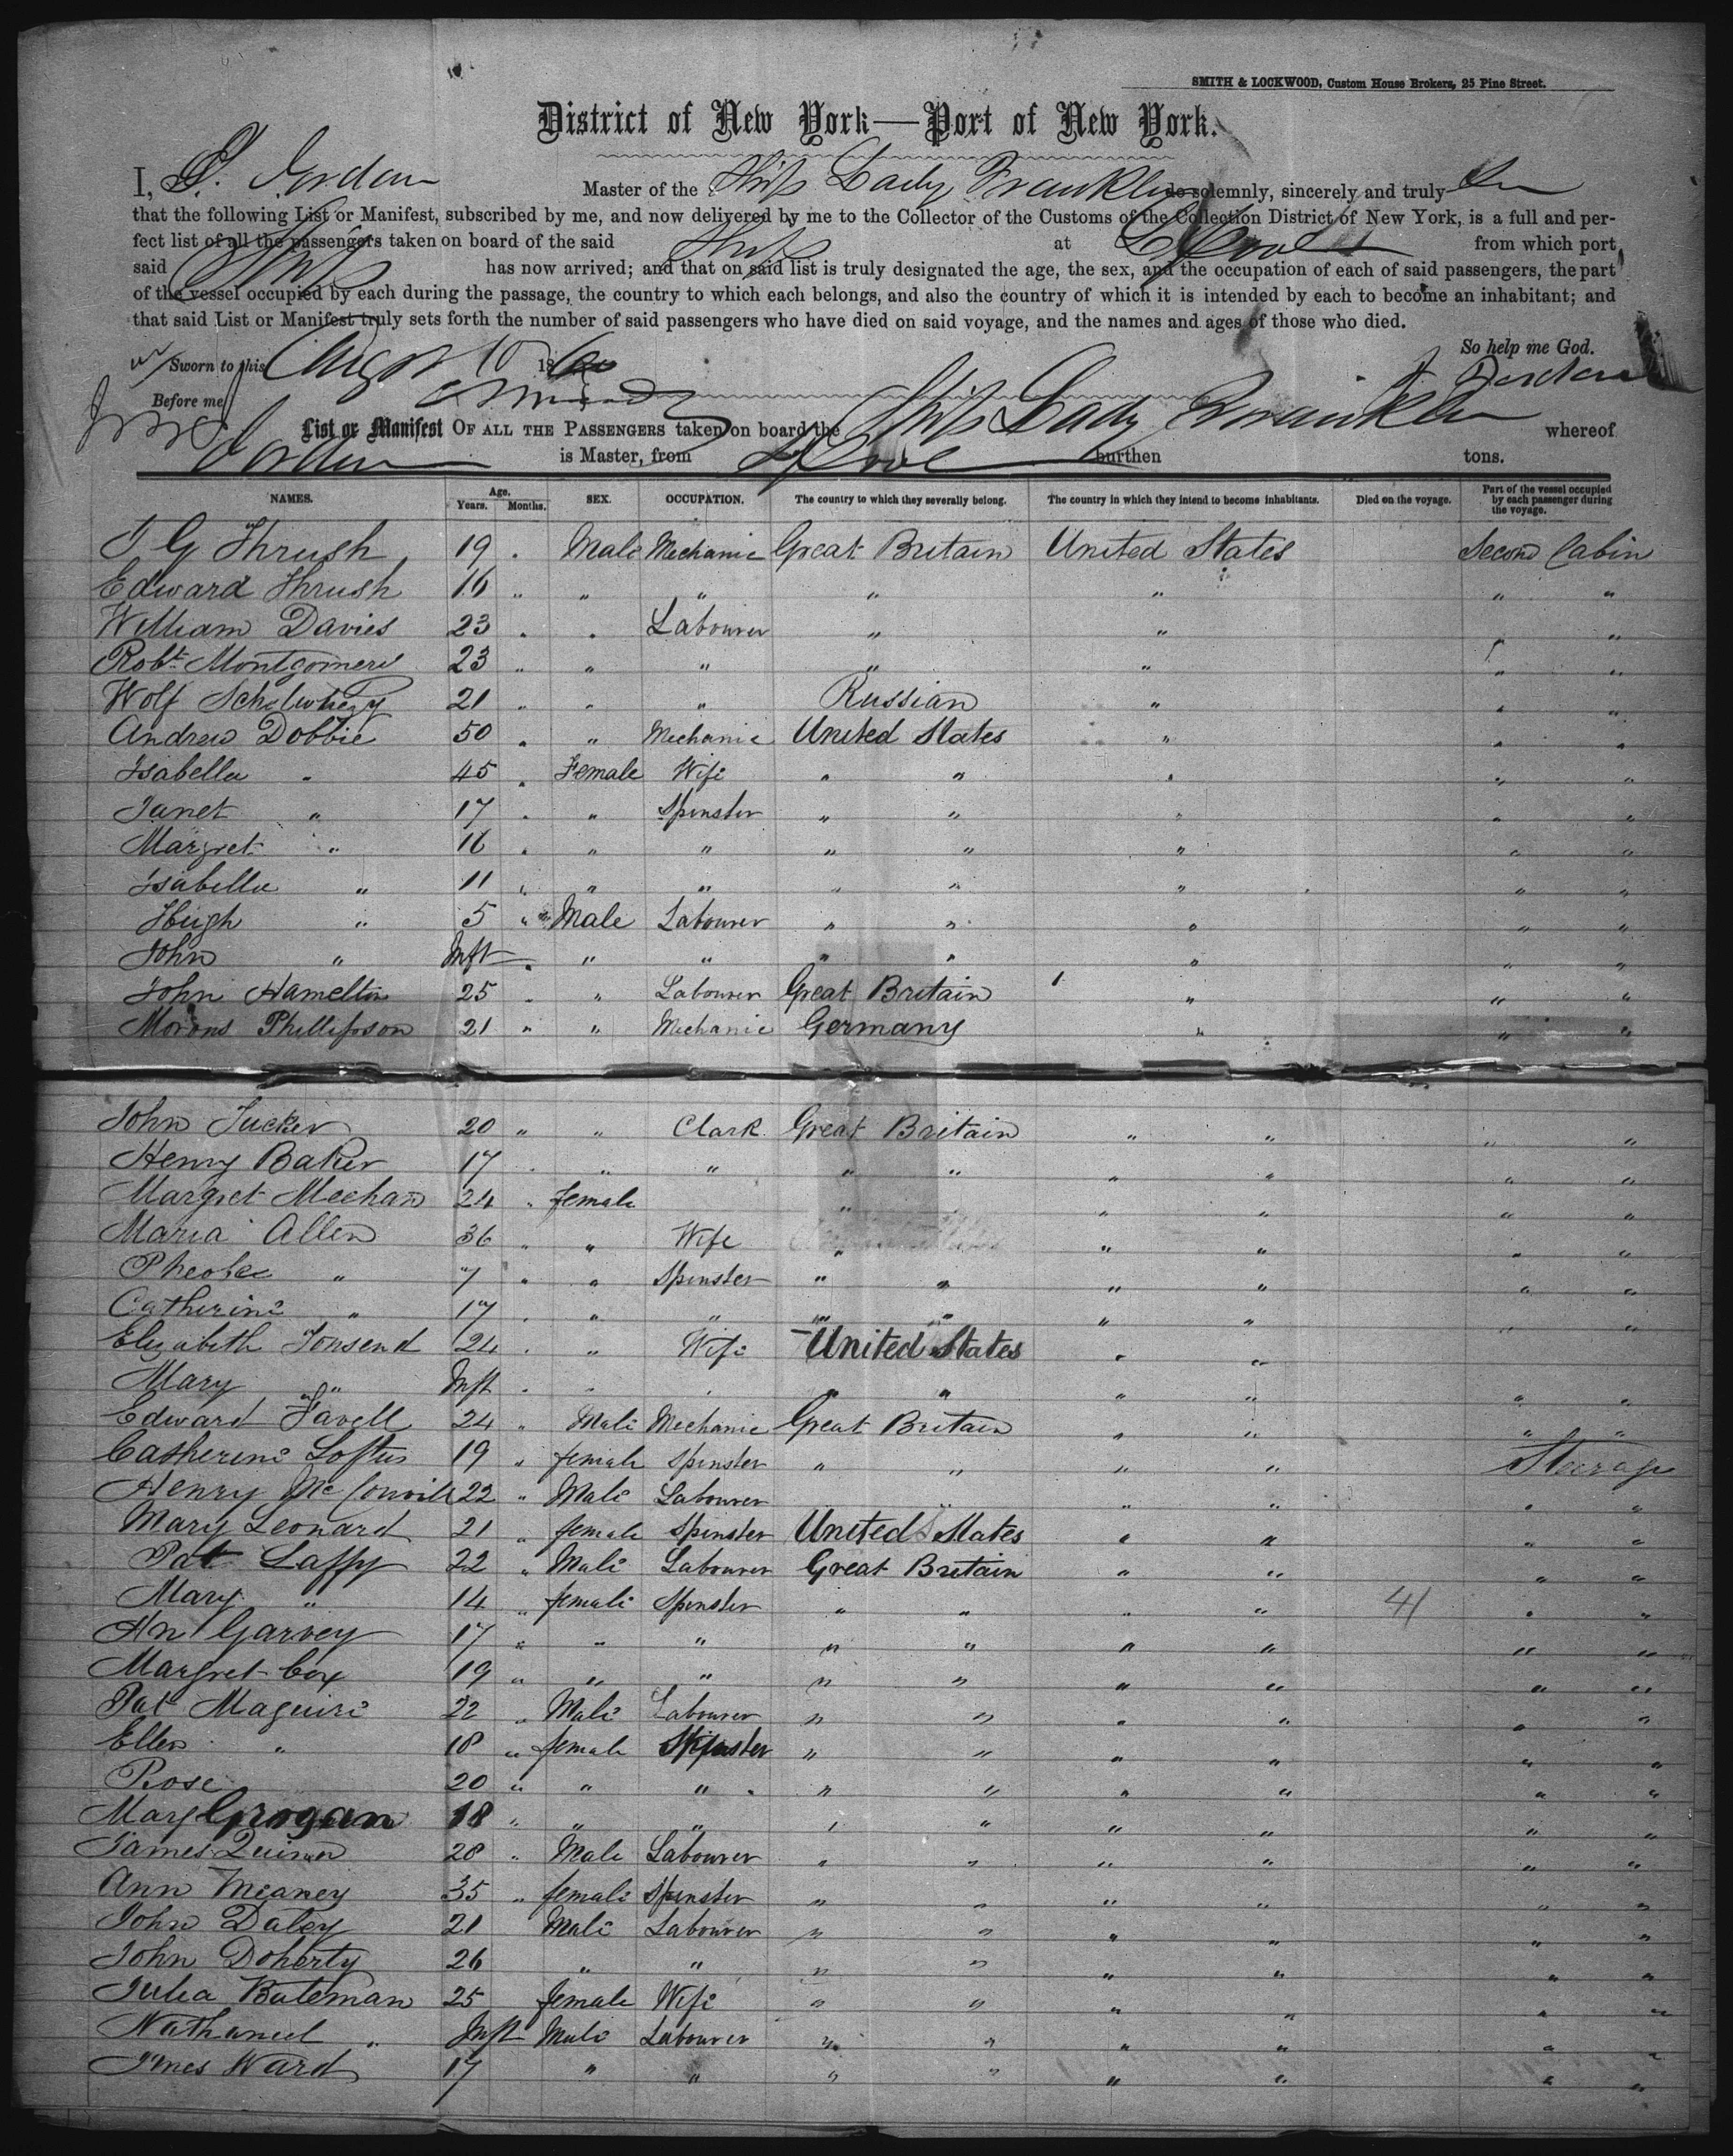 SMITH & LOCKWOOD, Custom House Brokers, 25 Pine Street.
District of New York—Port of New York.
I, Jordan Master of the Ship Lady Franklin do solemnly, sincerely and truly
that the following List or Manifest, subscribed by me, and now delivered by me to the Collector of the Customs of the Collection District of New York, is a full and per-
fect list of all the passengers taken on board of the said Ship at L'pool from which port
said Ship has now arrived; and that on said list is truly designated the age, the sex, and the occupation of each of said passengers, the part
of the vessel occupied by each during the passage, the country to which each belongs, and also the country of which it is intended by each to become an inhabitant; and
that said List or Manifest truly sets forth the number of said passengers who have died on said voyage, and the names and ages of those who died.
So help me God.
Sworn to this Augst 10 1860
Jordan
Before me
List or Manifest OF ALL THE PASSENGERS taken on board the Ship Lady Franklin whereof
Jordan is Master, from L'pool burthen tons.
NAMES. Age. Years. Months. SEX. OCCUPATION. The country to which they severally belong. The country in which they intend to become inhabitants. Died on the voyage. Part of the vessel occupied by each passenger during the voyage.
J. G Thrush 19 " Male Mechanic Great Britain United States Second Cabin
Edward Thrush 16 " " " " " " "
William Davies 23 " " Labourer " " " "
Robt Montgomery 23 " " " " " " "
Wolf 21 " " " Russian " " "
Andrew Dobbie 50 " " Mechanic United States " " "
Isabella " 45 " Female Wife " " " " "
Janet " 17 " " Spinster " " " " "
Margret " 16 " " " " " " " "
Isabella " 11 " " " " " " " "
Hugh " 5 " Male Labourer " " " " "
John " Inft " " " " " " " "
John Hamelton 25 " " Labourer Great Britain " " "
Morons Phillipson 21 " " Mechanic Germany " " "
John Tucker 20 " " Clark Great Britain " " " "
Henry Baker 17 " " " " " " " " "
Margret Meehan 24 " female " " " " "
Maria Allen 36 " " Wife " " " " "
Pheobe " 7 " " Spinster " " " " " "
Catherine " 17 " " " " " " " " "
Elizabeth Tonsend 24 " " Wife United States " "
Mary " Inft " " " " " " " " "
Edward Favell 24 " Male Mechanic Great Britain " " " "
Catherine Loftus 19 " female Spinster " " " " Steerage
Henry McConvill 22 " Male Labourer " " " " "
Mary Leonard 21 " female Spinster United States " " " "
Pat Laffy 22 " Male Labourer Great Britain " " " "
Mary " 14 " female Spinster " " " " 41 " "
An Garvey 17 " " " " " " " " "
Margret Cox 19 " " " " " " " " "
Pat Maguire 22 " Male Labourer " " " " " "
Ellen " 18 " female Spinster " " " " " "
Rose 20 " " " " " " " " "
Mary Grogan 18 " " " " " " " " "
James Quinn 28 " Male Labourer " " " " " "
Ann Meaney 35 " female Spinster " " " " " "
John Daley 21 Male Labourer " " " " " "
John Doherty 26 " " " " " " " "
Julia Bateman 25 female Wife " " " " " "
Nathaniel " Inft Male Labourer " " " " " "
Jmes Ward 17 " " " " " " " "